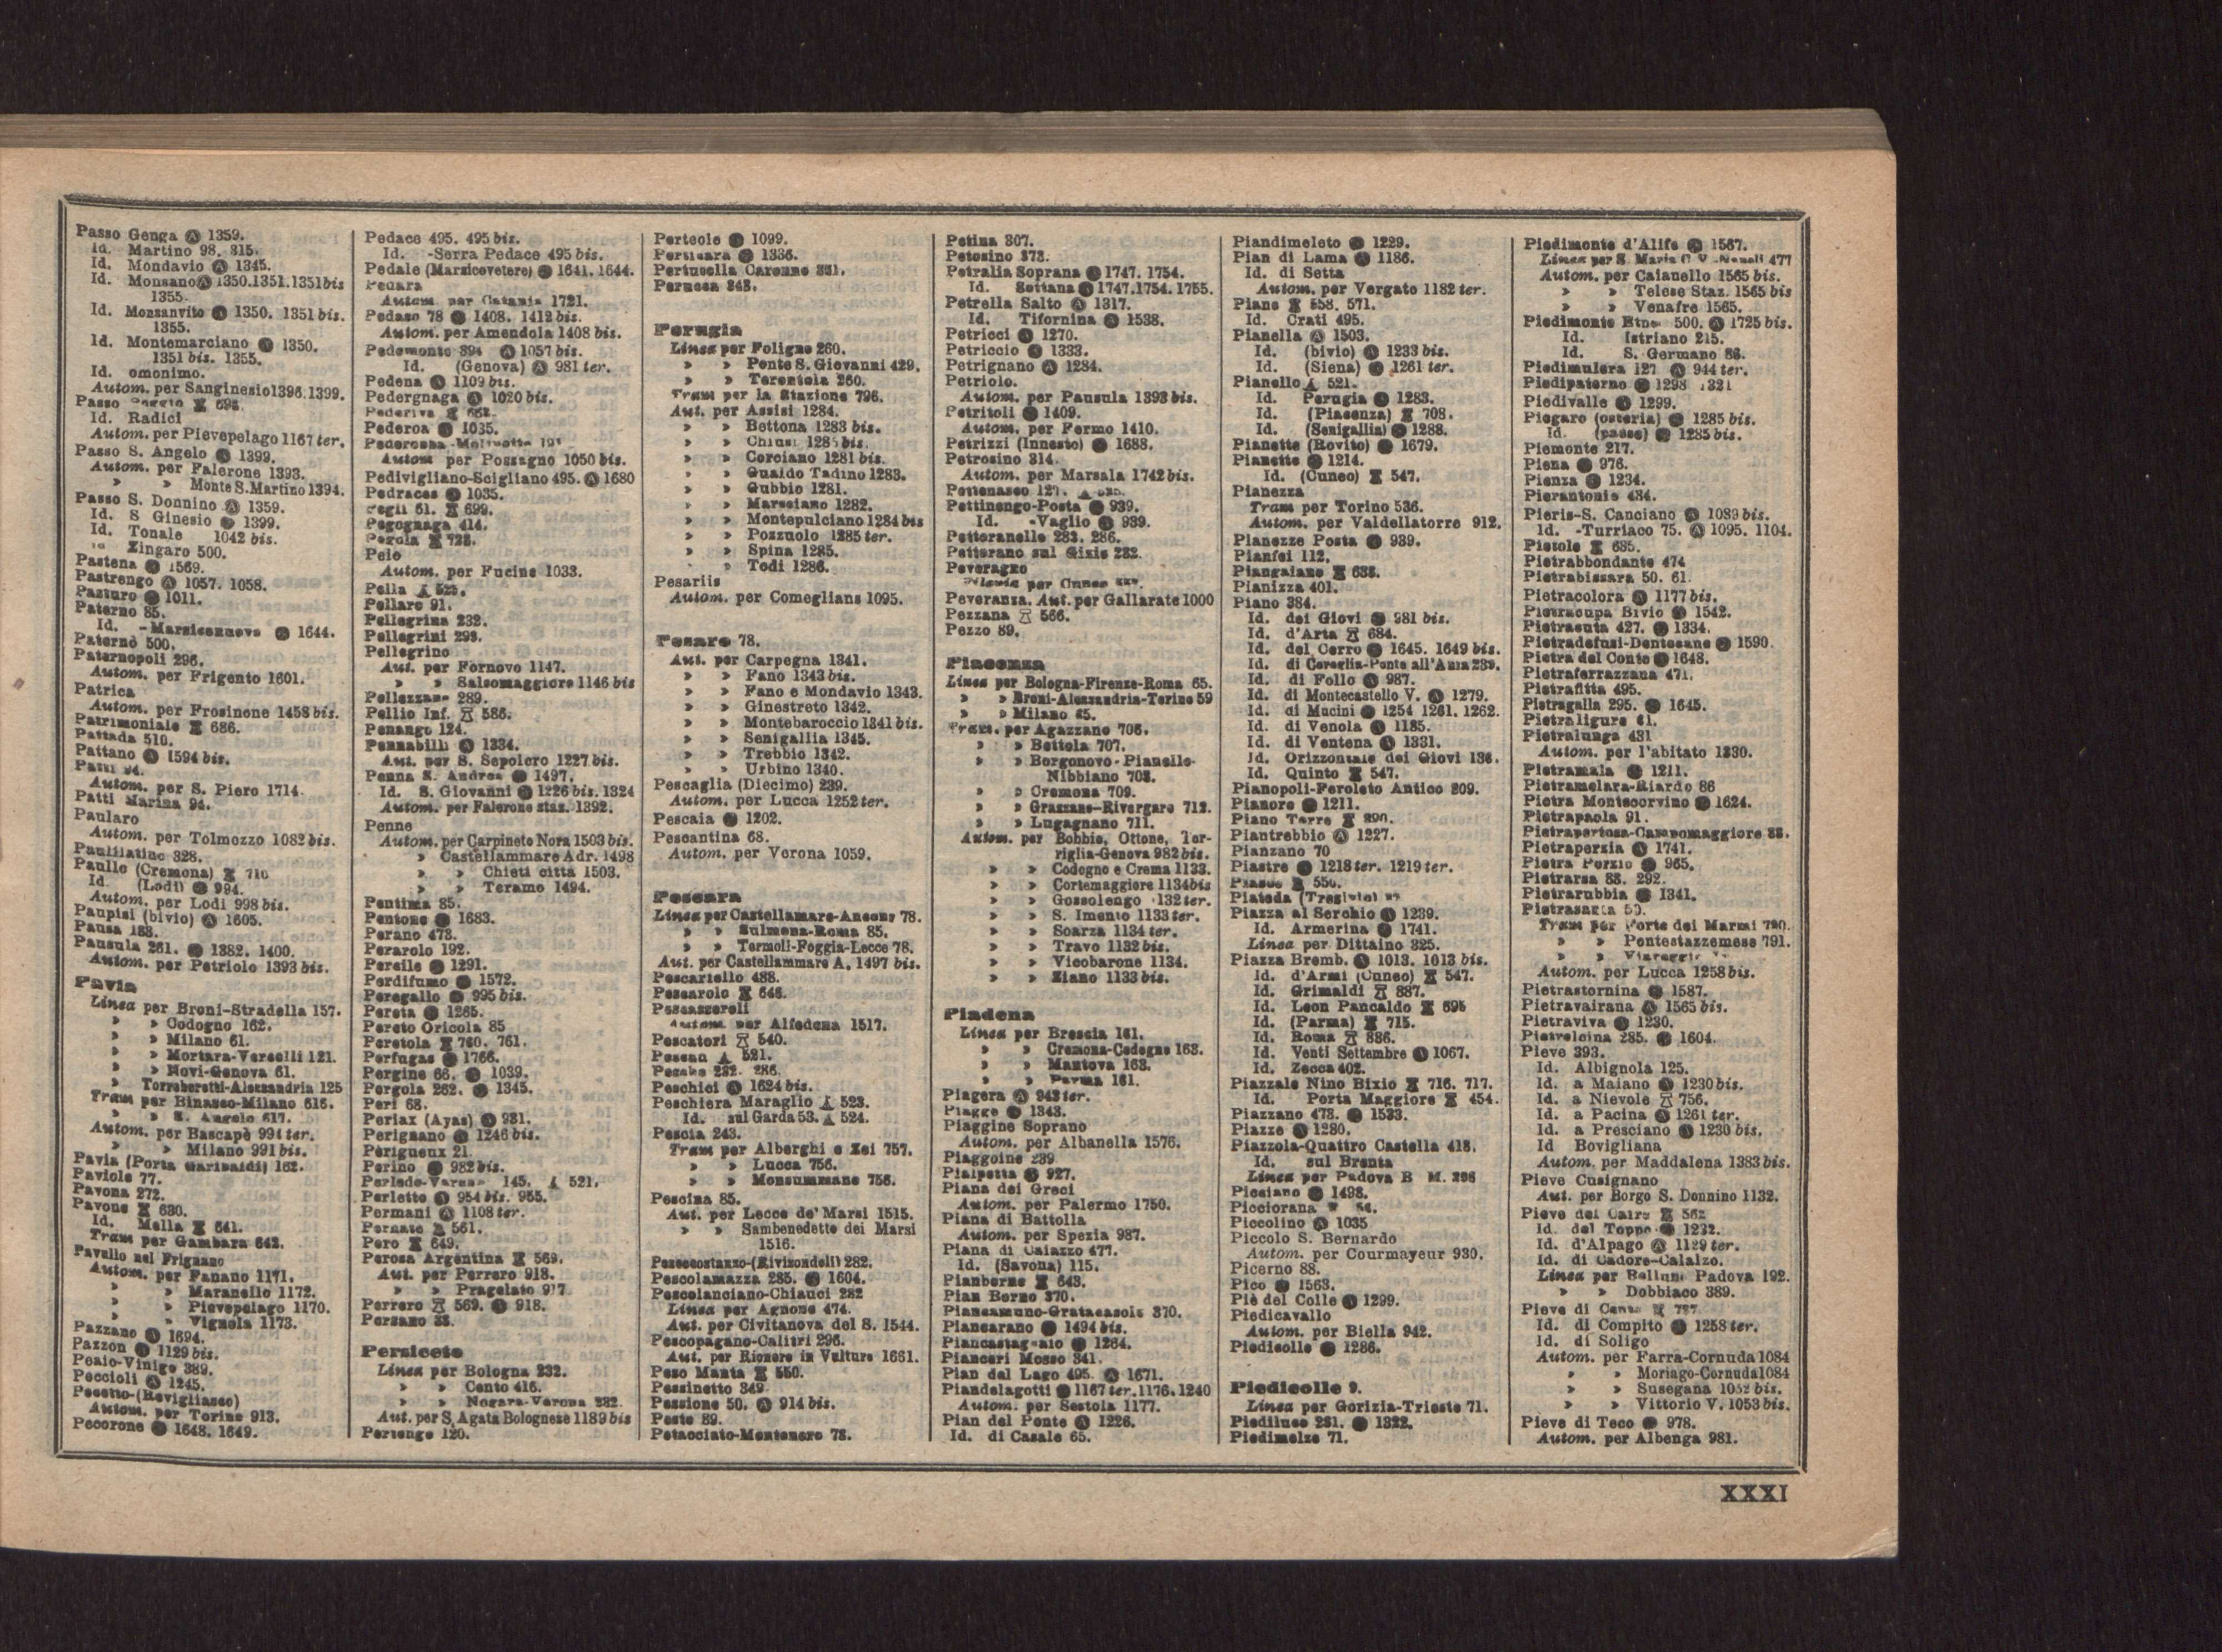 Passo Genga Ⓐ 1359.
Id. Martino 98. 315.
Id. Mondavio Ⓐ 1345.
Id. Monsano Ⓐ 1350.1351.1351 bis
1355.
Id. Monsanvito Ⓐ 1350. 1351 bis.
1355.
Id. Montemarciano Ⓐ 1350.
1351 bis. 1355.
Id. omonimo.
Autom. per Sanginesio 1396.1399.
Passo
Id. Radici
Autom. per Pievepelago 1167 ter.
Passo S. Angelo Ⓐ 1399.
Autom. per Falerone 1393.
» » Monte S. Martino 1394.
Passo S. Donnino Ⓐ 1359.
Id. S Ginesio Ⓐ 1399.
Id. Tonale 1042 bis.
Zingaro 500.
Pastena Ⓐ 1569.
Pastrengo Ⓐ 1057. 1058.
Pasturo Ⓐ 1011.
Paterno 85.
Id. -Marsiconuovo Ⓐ 1644.
Paternò 500.
Paternopoli 296.
Autom. per Frigento 1601.
Patrica
Autom. per Frosinone 1458 bis.
Patrimoniale 686.
Pattada 510.
Pattano Ⓐ 1594 bis.
Patti 94.
Autom. per S. Piero 1714.
Patti Marina 94.
Paularo
Autom. per Tolmezzo 1082 bis.
Paulilatino 328.
Paullo (Cremona) 710
Id. (Lodi) Ⓐ 994.
Autom. per Lodi 998 bis.
Paupisi (bivio) Ⓐ 1605.
Pausa 188.
Pausula 261. Ⓐ 1382. 1400.
Autom. per Petriolo 1393 bis.
Pavia
Linea per Broni-Stradella 157.
» » Codogno 162.
» » Milano 61.
» » Mortara-Vercelli 121.
» » Novi-Genova 61.
» Torreberetti-Alessandria 125
Tram per Binasco-Milano 616.
» » S. Angelo 617.
Autom. per Bascapè 991 ter.
» » Milano 991 bis.
Pavia (Porta Garibaldi) 162.
Paviole 77.
Pavona 272.
Pavone 630.
Id. Mella 641.
Tram per Gambara 642.
Pavullo nel Frignano
Autom. per Fanano 1171.
» » Maranello 1172.
» » Pievepelago 1170.
» » Vignola 1173.
Pazzano Ⓐ 1694.
Pazzon Ⓐ 1129 bis.
Peaio-Vinigo 389.
Peccioli Ⓐ 1245.
Pecetto (Revigliasco)
Autom. per Torino 913.
Pecorone Ⓐ 1648. 1649.
Pedace 495. 495 bis.
Id. -Serra Pedace 495 bis.
Pedale (Marsicovetere) Ⓐ 1641. 1644.
Pedara
Autom. per Catania 1721.
Pedaso 78 Ⓐ 1408. 1412 bis.
Autom. per Amendola 1408 bis.
Pedemonte 394 Ⓐ 1057 bis.
Id. (Genova) Ⓐ 981 ter.
Pedena Ⓐ 1109 bis.
Pedergnaga Ⓐ 1020 bis.
Pederiva
Pederoa Ⓐ 1035.
Pederobba
Autom per Possagno 1050 bis.
Pedivigliano-Scigliano 495. Ⓐ 1680
Pedraces Ⓐ 1035.
Pegli 61. 699.
Pegognaga 414.
Pegola 728.
Peio
Autom. per Fucine 1033.
Pella 525.
Pellaro 91.
Pellegrina 232.
Pellegrini 293.
Pellegrino
Aut. per Fornovo 1147.
» » Salsomaggiore 1146 bis
Pellezzano 289.
Pellio Inf. 586.
Penango 124.
Pennabilli Ⓐ 1334.
Aut. per S. Sepolcro 1227 bis.
Penna S. Andrea Ⓐ 1497.
Id. S. Giovanni Ⓐ 1226 bis. 1324
Autom. per Falerone staz. 1392.
Penne
Autom. per Carpineto Nora 1503 bis.
» Castellammare Adr. 1498
» » Chieti città 1503.
» » Teramo 1494.
Pentima 85.
Pentone Ⓐ 1683.
Perano 473.
Perarolo 192.
Percile Ⓐ 1291.
Perdifumo Ⓐ 1572.
Peregallo Ⓐ 995 bis.
Pereta Ⓐ 1265.
Pereto Oricola 85
Peretola 760. 761.
Perfugas Ⓐ 1766.
Pergine 66. Ⓐ 1039.
Pergola 262. Ⓐ 1345.
Peri 68.
Periax (Ayas) Ⓐ 931.
Perignano Ⓐ 1246 bis.
Pèrigueux 21
Perino Ⓐ 982 bis.
Perledo-Varenna 145. 521.
Perletto Ⓐ 954 bis. 955.
Permani Ⓐ 1108 ter.
Pernate 561.
Pero 649.
Perosa Argentina 569.
Aut. per Perrero 918.
» » Pragelato 917
Perrero 569. Ⓐ 918.
Persano 88.
Persiceto
Linea per Bologna 232.
» » Cento 416.
» » Nogara-Verona 232.
Aut. per S. Agata Bolognese 1189 bis
Pertengo 120.
Perteole Ⓐ 1099.
Perticara Ⓐ 1336.
Pertusella Caronno 351.
Perugia
Linea per Foligno 260.
» » Ponte S. Giovanni 429.
» » Terontola 260.
Tram per la Stazione 796.
Aut. per Assisi 1284.
» » Bettona 1283 bis.
» » Chiusi 1285 bis.
» » Corciano 1281 bis.
» » Gualdo Tadino 1283.
» » Gubbio 1281.
» » Marsciano 1282.
» » Montepulciano 1284 bis
» » Pozzuolo 1285 ter.
» » Spina 1285.
» » Todi 1286.
Pesariis
Autom. per Comeglians 1095.
Pesaro 78.
Aut. per Carpegna 1341.
» » Fano 1343 bis.
» » Fano e Mondavio 1343.
» » Ginestreto 1342.
» » Montebaroccio 1341 bis.
» » Senigallia 1345.
» » Trebbio 1342.
» » Urbino 1340.
Pescaglia (Diecimo) 239.
Autom. per Lucca 1252 ter.
Pescaia Ⓐ 1202.
Pescantina 68.
Autom. per Verona 1059.
Pescara
Linea per Castellamare-Ancona 78.
» » Sulmona-Roma 85.
» » Termoli-Foggia-Lecce 78.
Aut. per Castellammare A. 1497 bis.
Pescariello 488.
Pescarolo 646.
Pescasseroli
Autom. per Alfedena 1517.
Pescatori 540.
Peseau 521.
Peschici Ⓐ 1624 bis.
Peschiera Maraglio 523.
Id. sul Garda 53. 524.
Pescia 243.
Tram per Alberghi e Zei 757.
» » Lucca 756.
» » Monsummano 756.
Pescina 85.
Aut. per Lecce de' Marsi 1515.
» » Sambenedetto dei Marsi
1516.
Pescocostanzo-(Rivisondoli) 282.
Pescolamazza 285. Ⓐ 1604.
Pescolanciano-Chiauci 282
Linea per Agnone 474.
Aut. per Civitanova del S. 1544.
Pescopagano-Calitri 296.
Aut. per Rionero in Vulture 1661.
Peso Manta 550.
Pessinetto 349
Pessione 50. Ⓐ 914 bis.
Pesto 89.
Petacciato-Montenero 78.
Petina 307.
Petosino 373.
Petralia Soprana Ⓐ 1747. 1754.
Id. Sottana Ⓐ 1747.1754. 1755.
Petrella Salto Ⓐ 1317.
Id. Tifernina Ⓐ 1538.
Petricci Ⓐ 1270.
Petriccio Ⓐ 1333.
Petrignano Ⓐ 1284.
Petriolo.
Autom. per Pausula 1393 bis.
Petritoli Ⓐ 1409.
Autom. per Fermo 1410.
Petrizzi (Innesto) Ⓐ 1688.
Petrosino 314.
Autom. per Marsala 1742 bis.
Pettenasco 127.
Pettinengo-Posta Ⓐ 939.
Id. -Vaglio Ⓐ 939.
Pettoranello 283. 286.
Pettorano sul Gizio 282.
Peveragno
per Cuneo
Peveranza. Aut. per Gallarate 1000
Pezzana 566.
Pezzo 89.
Piacenza
Linea per Bologna-Firenze-Roma 65.
» » Broni-Alessandria-Torino 59
» » Milano 65.
Tram. per Agazzano 706.
» » Bettola 707.
» » Borgonovo-Pianello-
Nibbiano 708.
» » Cremona 709.
» » Grazzano-Rivergaro 712.
» » Lugagnano 711.
Autom. per Bobbio, Ottone, Tor-
riglia-Genova 982 bis.
» » Codogno e Crema 1133.
» » Cortemaggiore 1134 bis
» » Gossolengo 1132 ter.
» » S. Imento 1133 ter.
» » Soarza 1134 ter.
» » Travo 1132 bis.
» » Vicobarone 1134.
» » Ziano 1133 bis.
Piadena
Linea per Brescia 161.
» » Cremona-Codogno 163.
» » Mantova 163.
» » Parma 161.
Piagera Ⓐ 943 ter.
Piagge Ⓐ 1343.
Piaggine Soprano
Autom. per Albanella 1576.
Piaggoine 239
Pialpetta Ⓐ 927.
Piana dei Greci
Autom. per Palermo 1750.
Piana di Battolla
Autom. per Spezia 987.
Piana di Caiazzo 477.
Id. (Savona) 115.
Pianborno 643.
Pian Borno 370.
Piancamuno-Gratacasolo 370.
Piancarano Ⓐ 1494 bis.
Piancastagnaio Ⓐ 1264.
Pianceri Mosso 341.
Pian del Lago 495. Ⓐ 1671.
Piandelagotti Ⓐ 1167 ter.1176.1240
Autom. per Sestola 1177.
Pian del Ponte Ⓐ 1226.
Id. di Casale 65.
Piandimeleto Ⓐ 1229.
Pian di Lama Ⓐ 1186.
Id. di Setta
Autom. per Vergato 1182 ter.
Piane 558. 571.
Id. Crati 495.
Pianella Ⓐ 1503.
Id. (bivio) Ⓐ 1233 bis.
Id. (Siena) Ⓐ 1261 ter.
Pianello 521.
Id. Perugia Ⓐ 1283.
Id. (Piacenza) 708.
Id. (Senigallia) Ⓐ 1288.
Pianette (Rovito) Ⓐ 1679.
Pianetto Ⓐ 1214.
Id. (Cuneo) 547.
Pianezza
Tram per Torino 536.
Autom. per Valdellatorre 912.
Pianezze Posta Ⓐ 939.
Pianfei 112.
Piangaiano 638.
Pianizza 401.
Piano 384.
Id. dei Giovi Ⓐ 981 bis.
Id. d'Arta 684.
Id. del Cerro Ⓐ 1645. 1649 bis.
Id. di Coreglia-Ponte all'Ania 239.
Id. di Follo Ⓐ 987.
Id. di Montecastello V. Ⓐ 1279.
Id. di Mucini Ⓐ 1254 1261. 1262.
Id. di Venola Ⓐ 1185.
Id. di Ventena Ⓐ 1331.
Id. Orizzontale dei Giovi 136.
Id. Quinto 547.
Pianopoli-Feroleto Antico 309.
Pianoro Ⓐ 1211.
Piano Torre 890.
Piantrebbio Ⓐ 1227.
Pianzano 70
Piastre Ⓐ 1218 ter. 1219 ter.
Piateda (Tresivio)
Piazza al Serchio Ⓐ 1239.
Id. Armerina Ⓐ 1741.
Linea per Dittaino 325.
Piazza Bremb. Ⓐ 1013. 1013 bis.
Id. d'Armi (Cuneo) 547.
Id. Grimaldi 887.
Id. Leon Pancaldo 695
Id. (Parma) 715.
Id. Roma 886.
Id. Venti Settembre Ⓐ 1067.
Id. Zecca 402.
Piazzale Nino Bixio 716. 717.
Id. Porta Maggiore 454.
Piazzano 473. Ⓐ 1533.
Piazze Ⓐ 1280.
Piazzola-Quattro Castella 418.
Id. sul Brenta
Linea per Padova B M. 396
Picciano Ⓐ 1498.
Picciorana
Piccolino Ⓐ 1035
Piccolo S. Bernardo
Autom. per Courmayeur 930.
Picerno 88.
Pico Ⓐ 1563.
Piè del Colle Ⓐ 1299.
Piedicavallo
Autom. per Biella 942.
Piedicolle Ⓐ 1286.
Piedicolle 9.
Linea per Gorizia-Trieste 71.
Piediluco 281. Ⓐ 1322.
Piedimelze 71.
Piedimonte d'Alife Ⓐ 1567.
Linea per S. Maria C. V.-Napoli 477
Autom. per Caianello 1565 bis.
» » Telese Staz. 1565 bis
» » Venafro 1565.
Piedimonte Etneo 500. Ⓐ 1725 bis.
Id. Istriano 215.
Id. S. Germano 86.
Piedimulera 127 Ⓐ 944 ter.
Piedipaterno Ⓐ 1298 1321
Piedivalle Ⓐ 1299.
Piegaro (osteria) Ⓐ 1285 bis.
Id. (paese) Ⓐ 1285 bis.
Piemonte 217.
Piena Ⓐ 976.
Pienza Ⓐ 1234.
Pierantonio 434.
Pieris-S. Canciano Ⓐ 1089 bis.
Id. -Turriaco 75. Ⓐ 1095. 1104.
Pietole 685.
Pietrabbondante 474
Pietrabissara 50. 61.
Pietracolora Ⓐ 1177 bis.
Pietracupa Bivio Ⓐ 1542.
Pietracuta 427. Ⓐ 1334.
Pietradefusi-Dentecane Ⓐ 1590.
Pietra del Conte Ⓐ 1648.
Pietraferrazzana 471.
Pietrafitta 495.
Pietragalla 295. Ⓐ 1645.
Pietraligure 61.
Pietralunga 431
Autom. per l'abitato 1230.
Pietramala Ⓐ 1211.
Pietramelara-Riardo 86
Pietra Montecorvino Ⓐ 1624.
Pietrapaola 91.
Pietrapertosa-Campomaggiore 88.
Pietraperzia Ⓐ 1741.
Pietra Porzio Ⓐ 965.
Pietrarsa 88. 292.
Pietrarubbia Ⓐ 1341.
Pietrasanta 50.
Tram per Forte dei Marmi 790.
» » Pontestazzemese 791.
» » Viareggio
Autom. per Lucca 1258 bis.
Pietrastornina Ⓐ 1587.
Pietravairana Ⓐ 1565 bis.
Pietraviva Ⓐ 1230.
Pietrelcina 285. Ⓐ 1604.
Pieve 393.
Id. Albignola 125.
Id. a Maiano Ⓐ 1230 bis.
Id. a Nievole 756.
Id. a Pacina Ⓐ 1261 ter.
Id. a Presciano Ⓐ 1230 bis.
Id Bovigliana
Autom. per Maddalena 1383 bis.
Pieve Cusignano
Aut. per Borgo S. Donnino 1132.
Pieve del Cairo 562
Id. del Toppo Ⓐ 1232.
Id. d'Alpago Ⓐ 1129 ter.
Id. di Cadore-Calalzo.
Linea per Belluno Padova 192.
» » Dobbiaco 389.
Pieve di Cento 727
Id. di Compito Ⓐ 1258 ter.
Id. di Soligo
Autom. per Farra-Cornuda 1084
» » Moriago-Cornuda 1084
» » Susegana 1052 bis.
» » Vittorio V. 1053 bis.
Pieve di Teco Ⓐ 978.
Autom. per Albenga 981.
XXXI